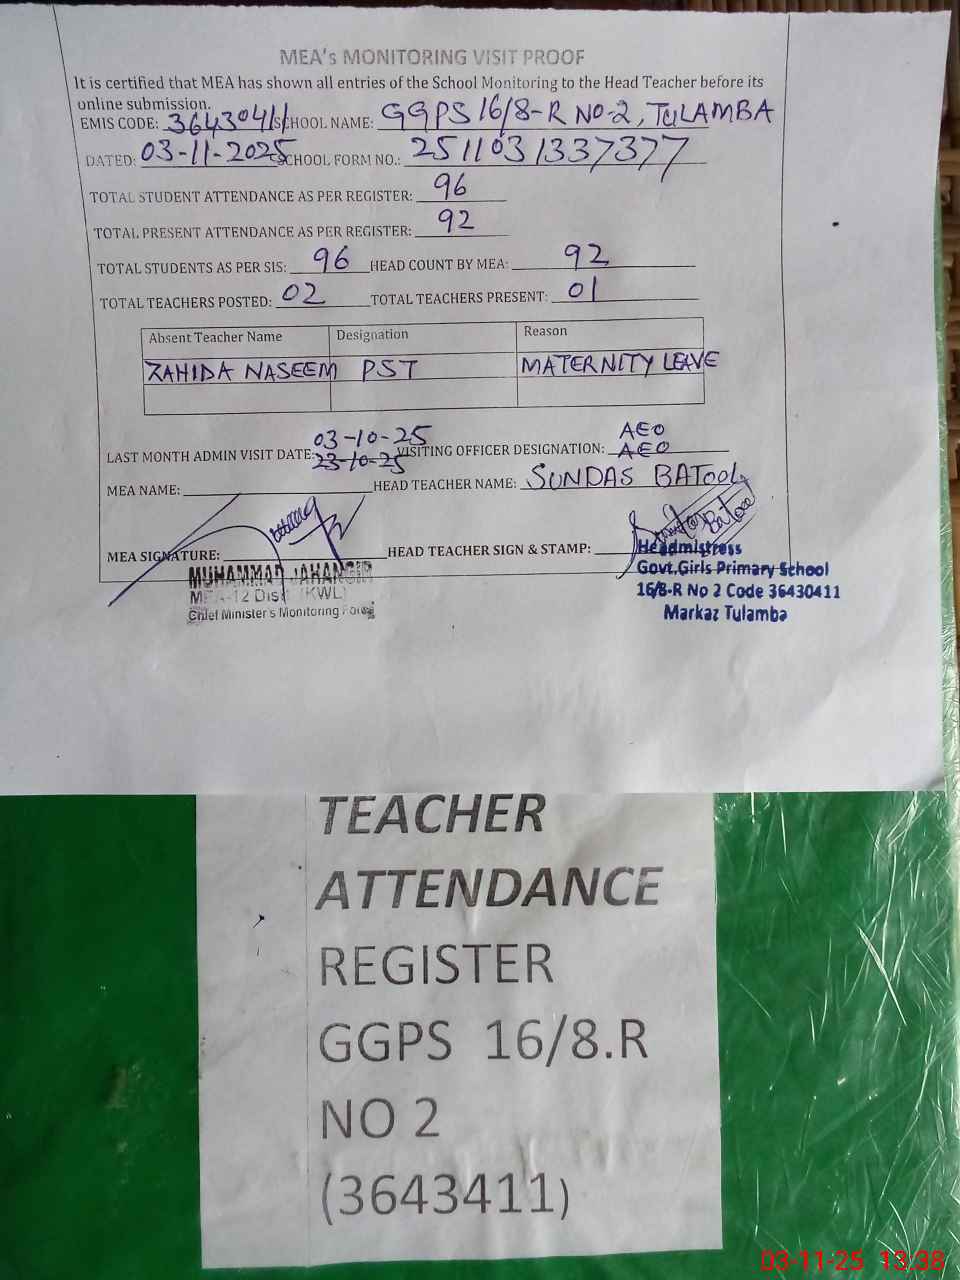 MEA's MONITORING VISIT PROOF
It is certified that MEA has shown all entries of the School Monitoring to the Head Teacher before its
online submission.
EMIS CODE: 36430411 SCHOOL NAME: GGPS 16/8-R NO-2, TULAMBA
DATED: 03-11-2025 SCHOOL FORM NO.: 2511031337377
TOTAL STUDENT ATTENDANCE AS PER REGISTER: 96
TOTAL PRESENT ATTENDANCE AS PER REGISTER: 92
TOTAL STUDENTS AS PER SIS: 96 HEAD COUNT BY MEA: 92
TOTAL TEACHERS POSTED: 02 TOTAL TEACHERS PRESENT: 01
Absent Teacher Name Designation Reason
ZAHIDA NASEEM PST MATERNITY LEAVE
03-10-25 AEO
LAST MONTH ADMIN VISIT DATE: 23-10-25 VISITING OFFICER DESIGNATION: AEO
MEA NAME: HEAD TEACHER NAME: SUNDAS BATOOL
MEA SIGNATURE: HEAD TEACHER SIGN & STAMP:
MUHAMMAD JAHANGIR
MEA-12 Dist (KWL)
Chief Minister's Monitoring Force
Headmistress
Govt.Girls Primary School
16/8-R No 2 Code 36430411
Markaz Tulamba
TEACHER
ATTENDANCE
REGISTER
GGPS 16/8.R
NO 2
(3643411)
03-11-25 13:38